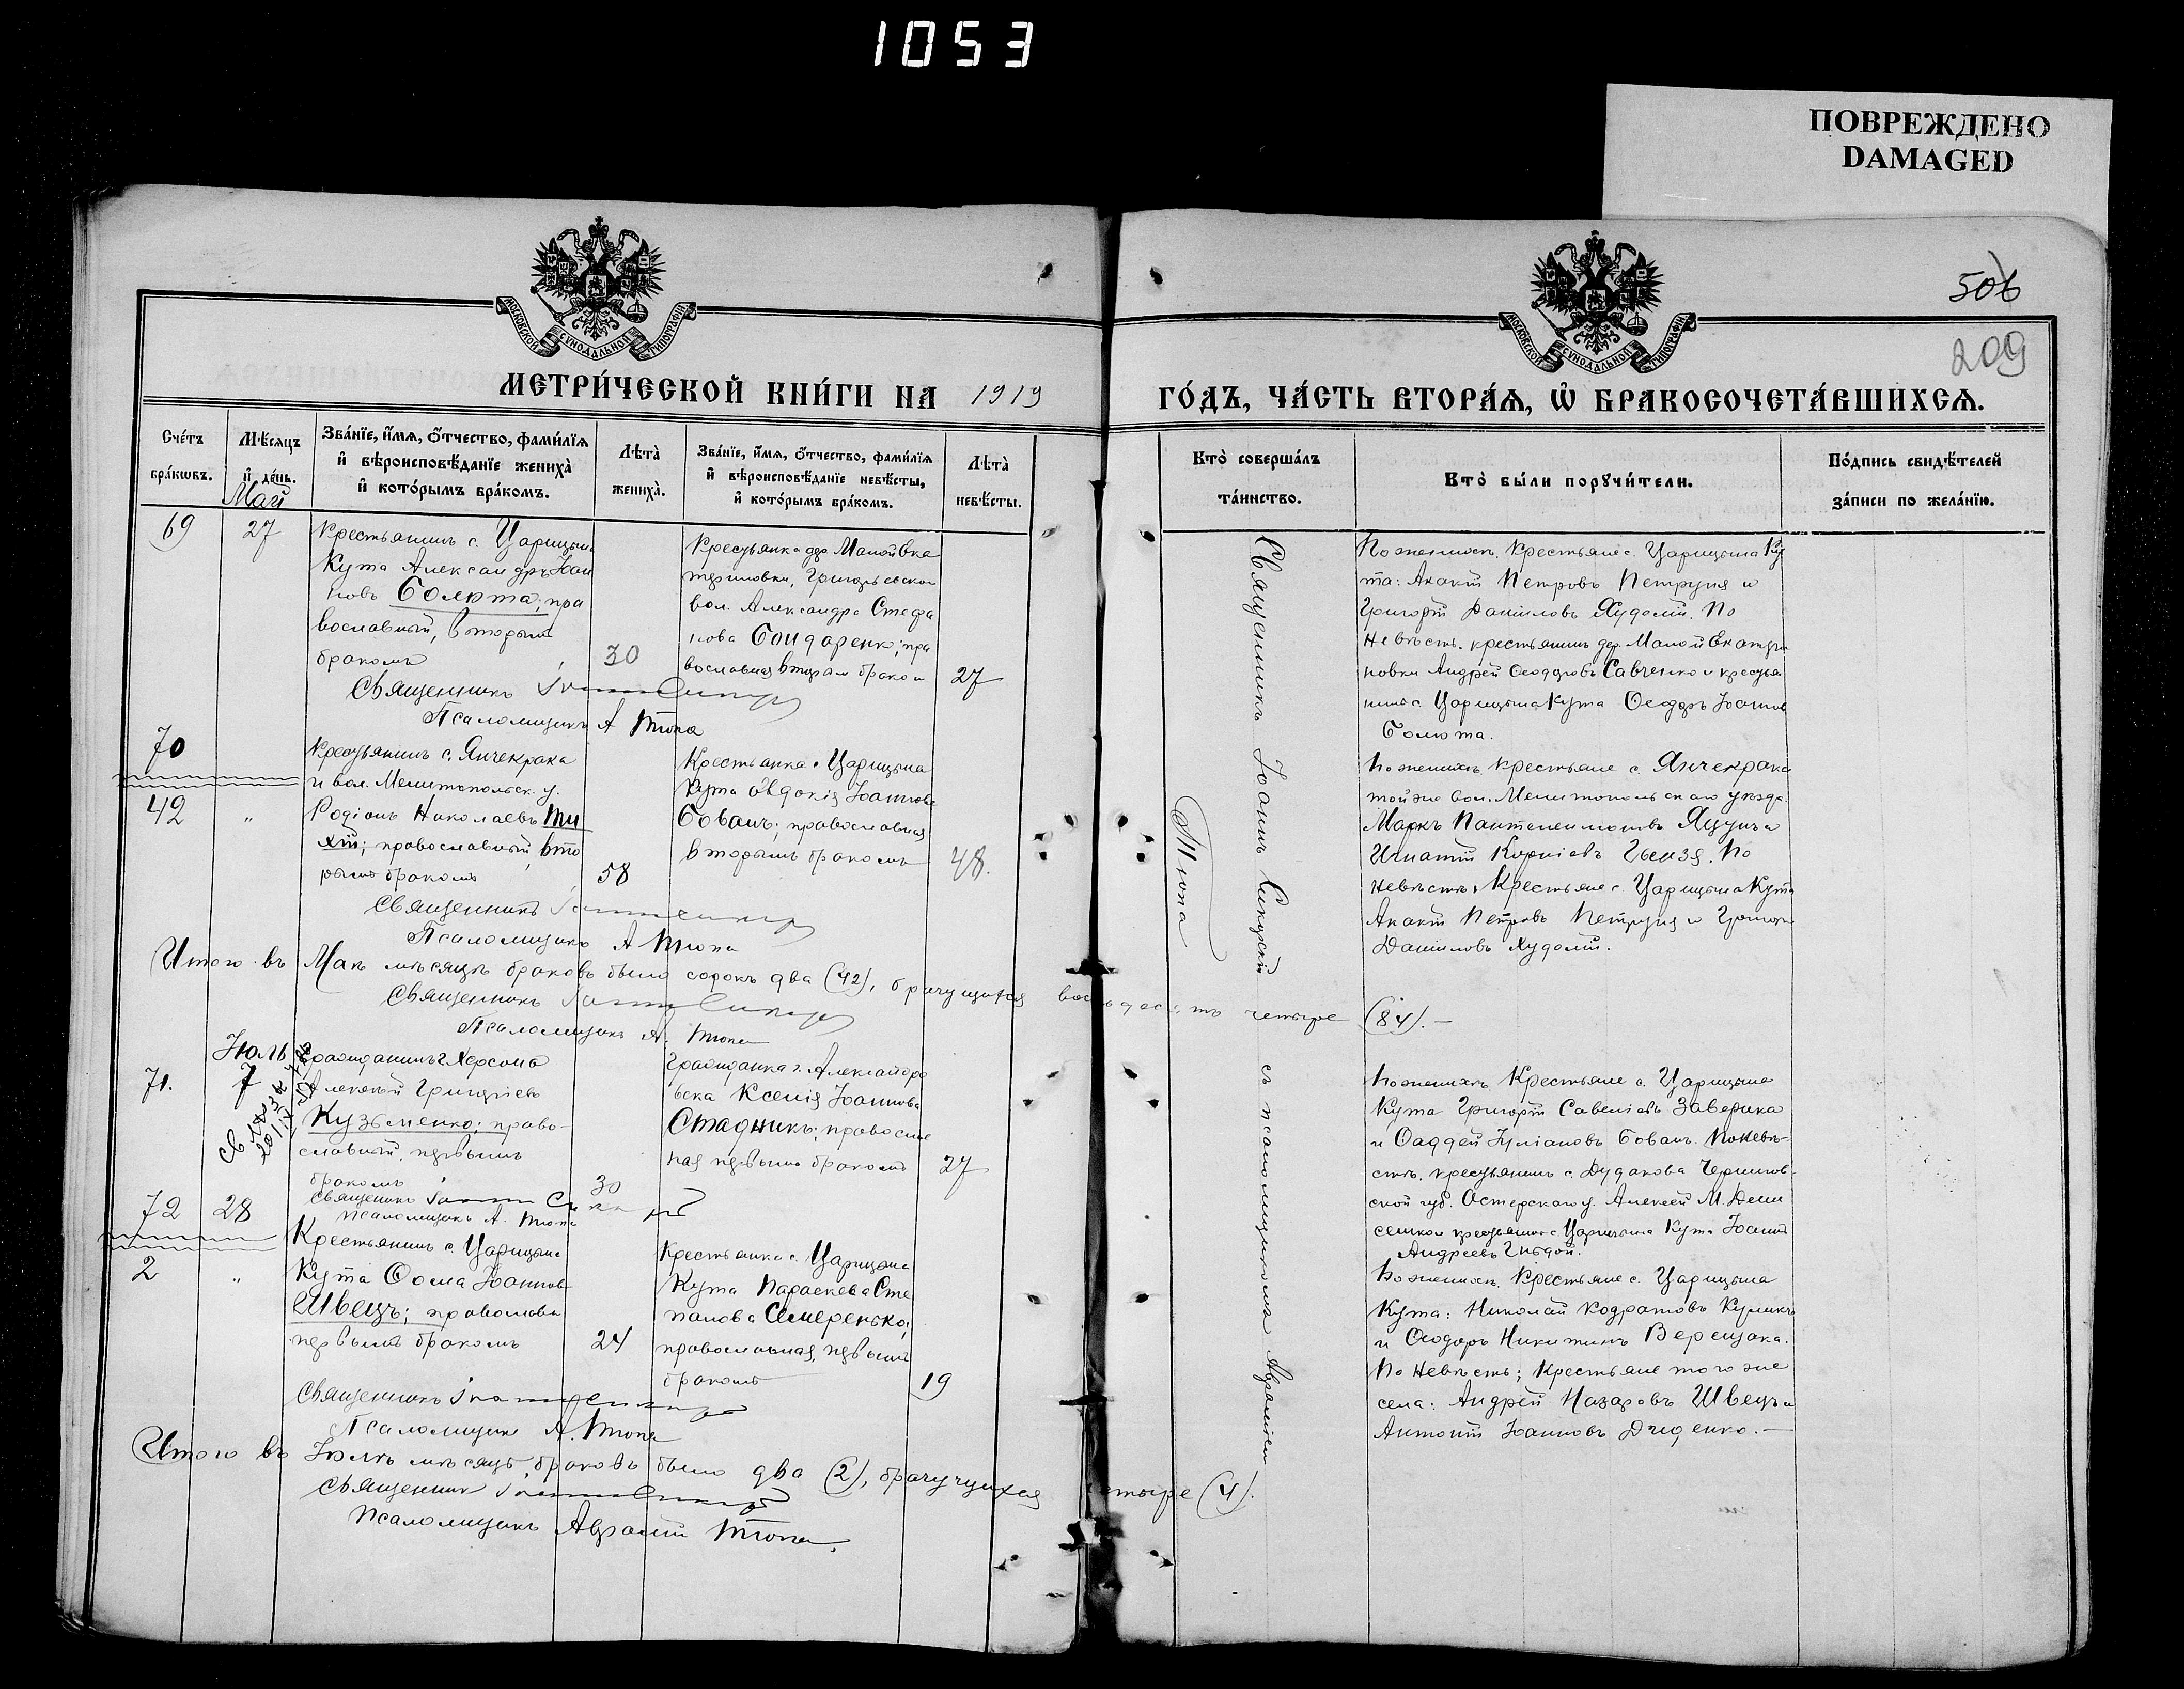 1053
ПОВРЕЖДЕНО
DAMAGED
МОСКОВСКОЙ СѴНОДАЛЬНОЙ ТИПОГРАФІИ
МОСКОВСКОЙ СѴНОДАЛЬНОЙ ТИПОГРАФІИ
506
209
МЕТРИ́ЧЕСКОЙ КНИ́ГИ НА 1919
ГО́ДЪ, ЧА́СТЬ ВТОРА́Ѧ, Ѡ҆ БРАКОСОЧЕТА́ВШИХСѦ.
Сче́тъ бра́кѡвъ.
Мѣ́сѧцъ и҆ де́нь.
Зва́нїе, и҆́мѧ, о҆́тчество, фами́лїѧ и҆ вѣроисповѣ́данїе жениха̀ и҆ кото́рымъ бра́комъ.
Лѣта̀ жениха̀.
Зва́нїе, и҆́мѧ, о҆́тчество, фами́лїѧ и҆ вѣроисповѣ́данїе невѣ́сты, и҆ кото́рымъ бра́комъ.
Лѣта̀ невѣ́сты.
Кто̀ соверша́лъ та́инство.
Кто̀ бы́ли порꙋчи́тели.
По́дпись свидѣ́телей за́писи по жела́нїю.
Май
69
27
Крестьянинъ с. Царицына
Кута Александръ Іоан
новъ Болюта; пра
вославный, вторымъ
бракомъ
30
Крестьянка дер. Малой Ека
териновки, Григорьевской
вол. Александра Стефа
нова Бондаренко; пра
вославная вторым браком
27
Священникъ
Псаломщикъ А Тюпа
Священникъ Іоаннъ съ псаломщикомъ Авраміем
Тюпа
По женихѣ. Крестьяне с. Царицына Ку
та: Акакій Петровъ Петруня и
Григорій Даниловъ Худолій. По
Невѣстѣ. крестьянинъ дер. Малой Екатери
новки Андрей Ѳеодоровъ Савченко и крестья
нинъ с. Царицына Кута Ѳеодоръ Іоаннов
Болюта.
70
42
"
Крестьянинъ с. Янчекрака
и вол. Мелитопольск. у.
Родіонъ Николаевъ Ти
хій; православный, вто
рымъ бракомъ
58
Крестьянка с. Царицына
Кута Евдокія Іоаннова
Бованъ; православная
вторымъ бракомъ
48.
Священникъ
Псаломщикъ А Тюпа
По женихѣ. Крестьяне с. Янчекрака
той же вол. Мелитопольскаго уѣзда.
Маркъ Пантелеимоновъ Яцунъ и
Игнатій Корніевъ. По
невѣстѣ: Крестьяне с. Царицына Кута
Акакій Петровъ Петруня и Григорій
Даниловъ Худолій.
Итого въ Маѣ мѣсяцѣ браковъ было сорокъ два (42), брачущихся восемьдесятъ четыре (84).—
Священникъ
Псаломщикъ А. Тюпа
Іюль
71.
7
гражданинъ г. Херсона
Алексѣй Григоріевъ
Кузьменко; право-
славный, первымъ
бракомъ
30
Гражданка г. Александро
вска Ксенія Іоаннова
Стадникъ; православ
ная первымъ бракомъ
27
Священникъ
Псаломщикъ А. Тюпа
По женихѣ Крестьяне с. Царицына
Кута Григорій Савеліевъ Заверика
и Ѳаддей Іуліановъ Бованъ. По невѣ-
стѣ. крестьянинъ с. Дудакова Чернигов-
ской губ. Остерскаго у. Алексей М. Дени
сенко и крестьянинъ с. Царицына Кута Іоаннъ
Андреевъ Гнѣдой.
72
28
2
"
Крестьянинъ с. Царицына
Кута Ѳома Іоанновъ
Швецъ; православн
первымъ бракомъ
24
Крестьянка с. Царицына
Кута Параскева Сте
панова Семеренько;
православная, первымъ
бракомъ
19
Священникъ
Псаломщикъ А. Тюпа
По женихѣ. Крестьяне с. Царицына
Кута: Николай Кодратовъ Куликъ
и Ѳеодоръ Никитинъ Верещака.
По Невѣстѣ; Крестьяне того же
села: Андрей Назаровъ Швецъ и
Антоній Іоанновъ Диденко.—
Итого въ Іюлѣ мѣсяцѣ, браковъ было два (2), брачущихся четыре (4).
Священникъ
Псаломщикъ Аврамій Тюпа.